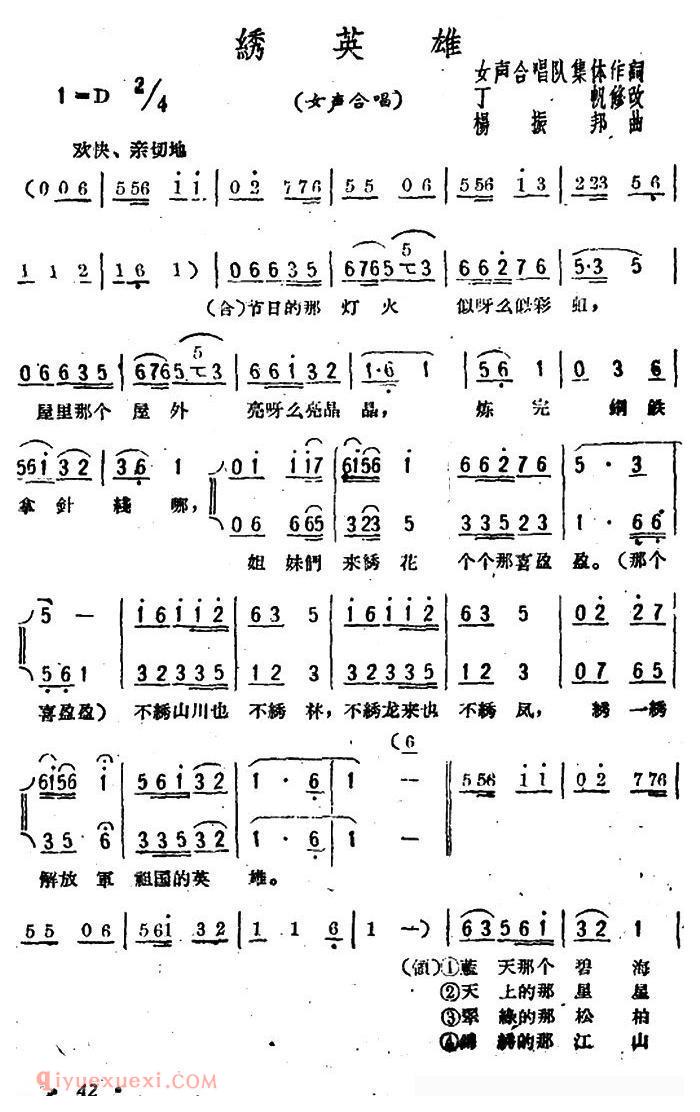 綉 英 雄
女声合唱队集体作詞
1=D 2/4
(女声合唱)
丁 帆修改
楊 振 邦 曲
欢快、亲切地
(0 0 6 | 5 56 i i | 0 2 7 76 | 5 5 0 6 | 5 56 i 3 | 2 23 5 6 |
1 1 2 | 1 6 1) | 0 6 6 3 5 | 6765 3 | 6 6 2 7 6 | 5·3 5 |
(合)节日的那 灯 火 似呀么似彩 虹，
0 6 6 3 5 | 6765 3 | 6 6 i 3 2 | 1·6 1 | 5 6 1 | 0 3 6 |
屋里那个 屋 外 亮呀么亮晶 晶， 炼 完 鋼 鉄
5 6 i 3 2 | 3 6 1 | 0 i i i7 | 6i56 i | 6 6 2 7 6 | 5 · 3 |
拿 針 綫 哪，
0 6 6 65 | 3 23 5 | 3 3 5 2 3 | 1 · 6 6 |
姐 妹們 来綉 花 个个那喜盈 盈。(那个
5 — | i 6 i i 2 | 6 3 5 | i 6 i i 2 | 6 3 5 | 0 2 2 7 |
5 6 1 | 3 2 3 3 5 | 1 2 3 | 3 2 3 3 5 | 1 2 3 | 0 7 6 5 |
喜盈盈) 不綉山川也 不綉 林，不綉龙来也 不綉 凤， 綉 一綉
(6
6i56 i | 5 6 i 3 2 | 1 · 6 | 1 — | 5 56 i i | 0 2 7 76 |
3 5 6 | 3 3 5 3 2 | 1 · 6 | 1 —
解放 軍 祖国的英 雄。
5 5 0 6 | 5 6i 3 2 | 1 1 6 | 1 —) | 6 3 5 6 i | 3 2 1 |
(領)①藍 天那个 碧 海
②天 上的那 星 星
③翠 綠的那 松 柏
④錦 綉的那 江 山
Qiyuexuexi.com
42